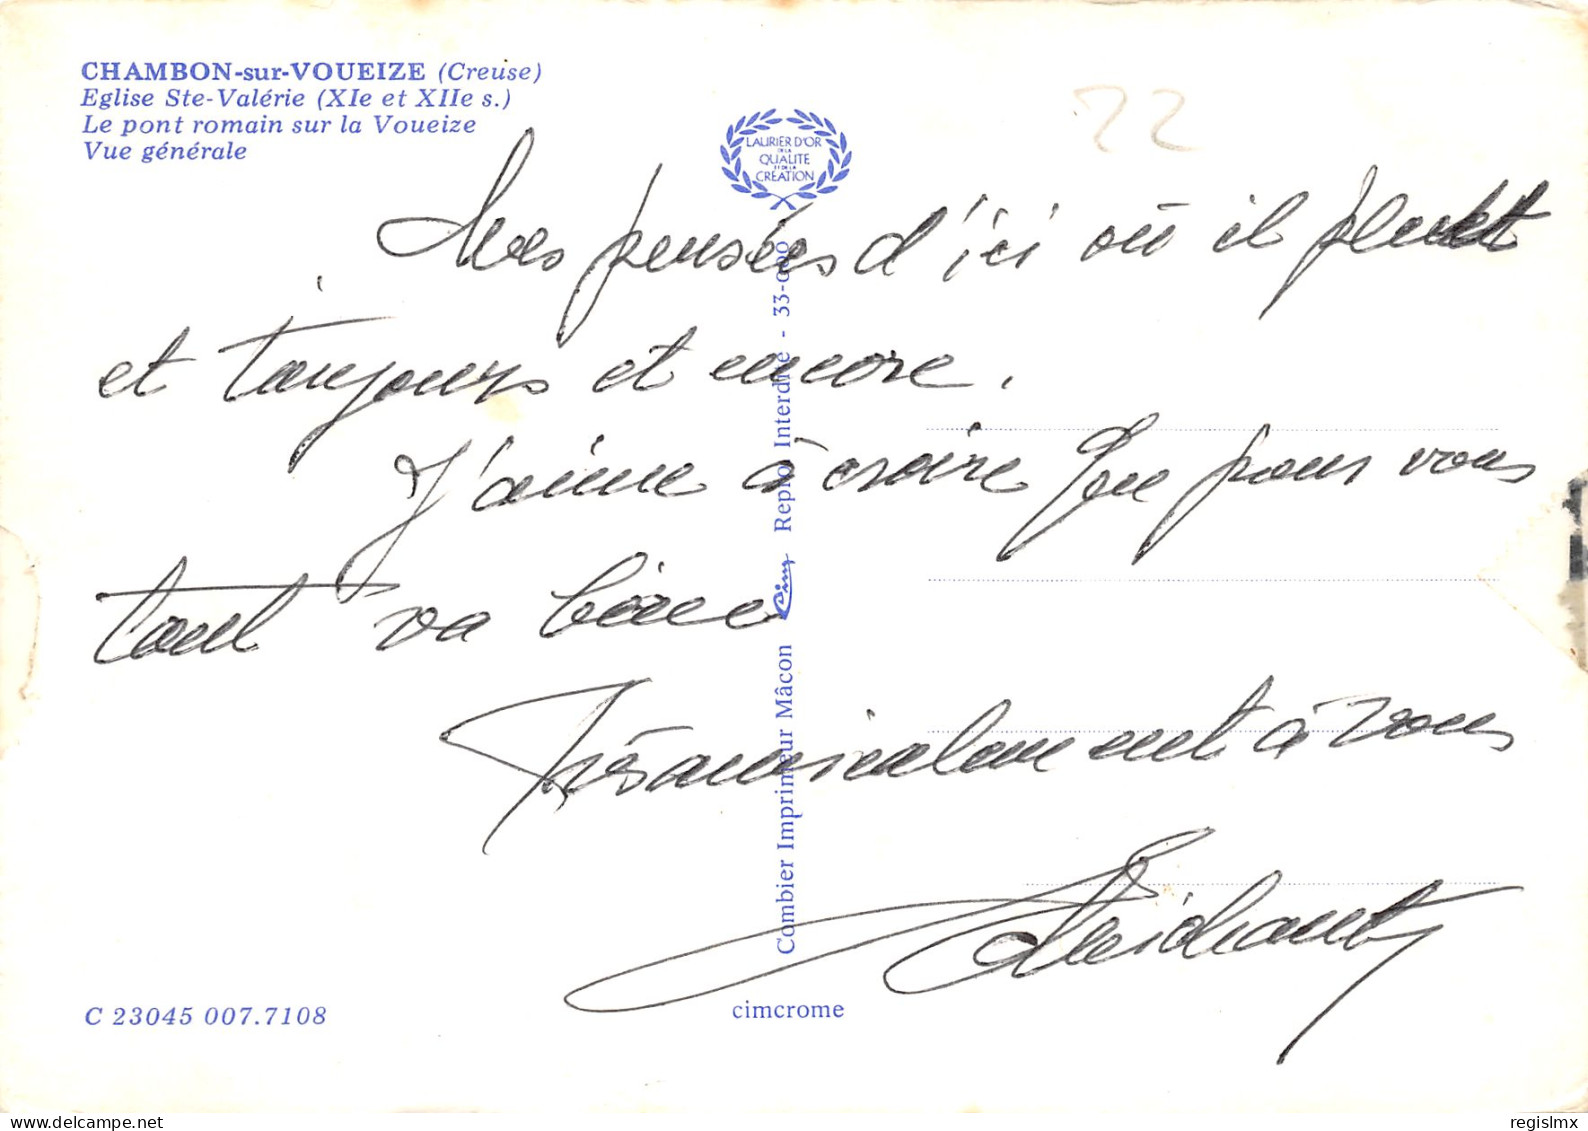 CHAMBON-sur-VOUEIZE (Creuse)
Eglise Ste-Valérie (XIe et XIIe s.)
Le pont romain sur la Voueize
Vue générale
LAURIER D'OR
DE LA
QUALITE
ET DE LA
CREATION
22
Mes pensées d'ici où il pleut
et toujours et encore.
J'aime à croire que pour vous
tout va bien
Très amicalement à vous
Combier Imprimeur Mâcon Cim Repro Interdite - 33-090
C 23045 007.7108
cimcrome
delcampe.net
regislmx